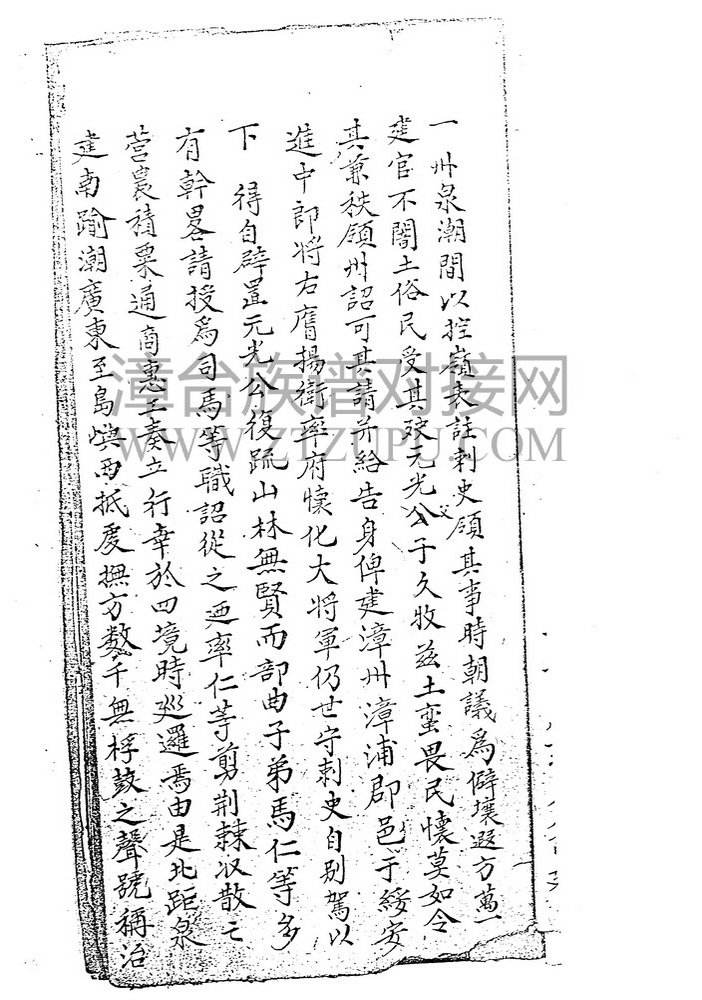 一州泉潮間以控嶺表註刺史領其事時朝議為僻壤遐方萬一
建官不闇土俗民受其殃元光公父子久牧茲土蠻畏民懷莫如令
其兼秩領州詔可其請並給告身俾建漳州漳浦郡邑于綏安
進中郎將右鷹揚衛率府懷化大將軍仍世守刺史自別駕以
下得自辟置元光公復疏山林無賢而部曲子弟馬仁等多
有幹畧請授為司馬等職詔從之廼率仁等剪荆棘收散亡
營農積粟通商惠工奏立行臺於四境時廵邏焉由是北距泉
建南踰潮廣東至島嶼西抵虔撫方数千無桴鼓之聲號稱治
漳台族谱对接网
WWW.ZTZUPU.COM